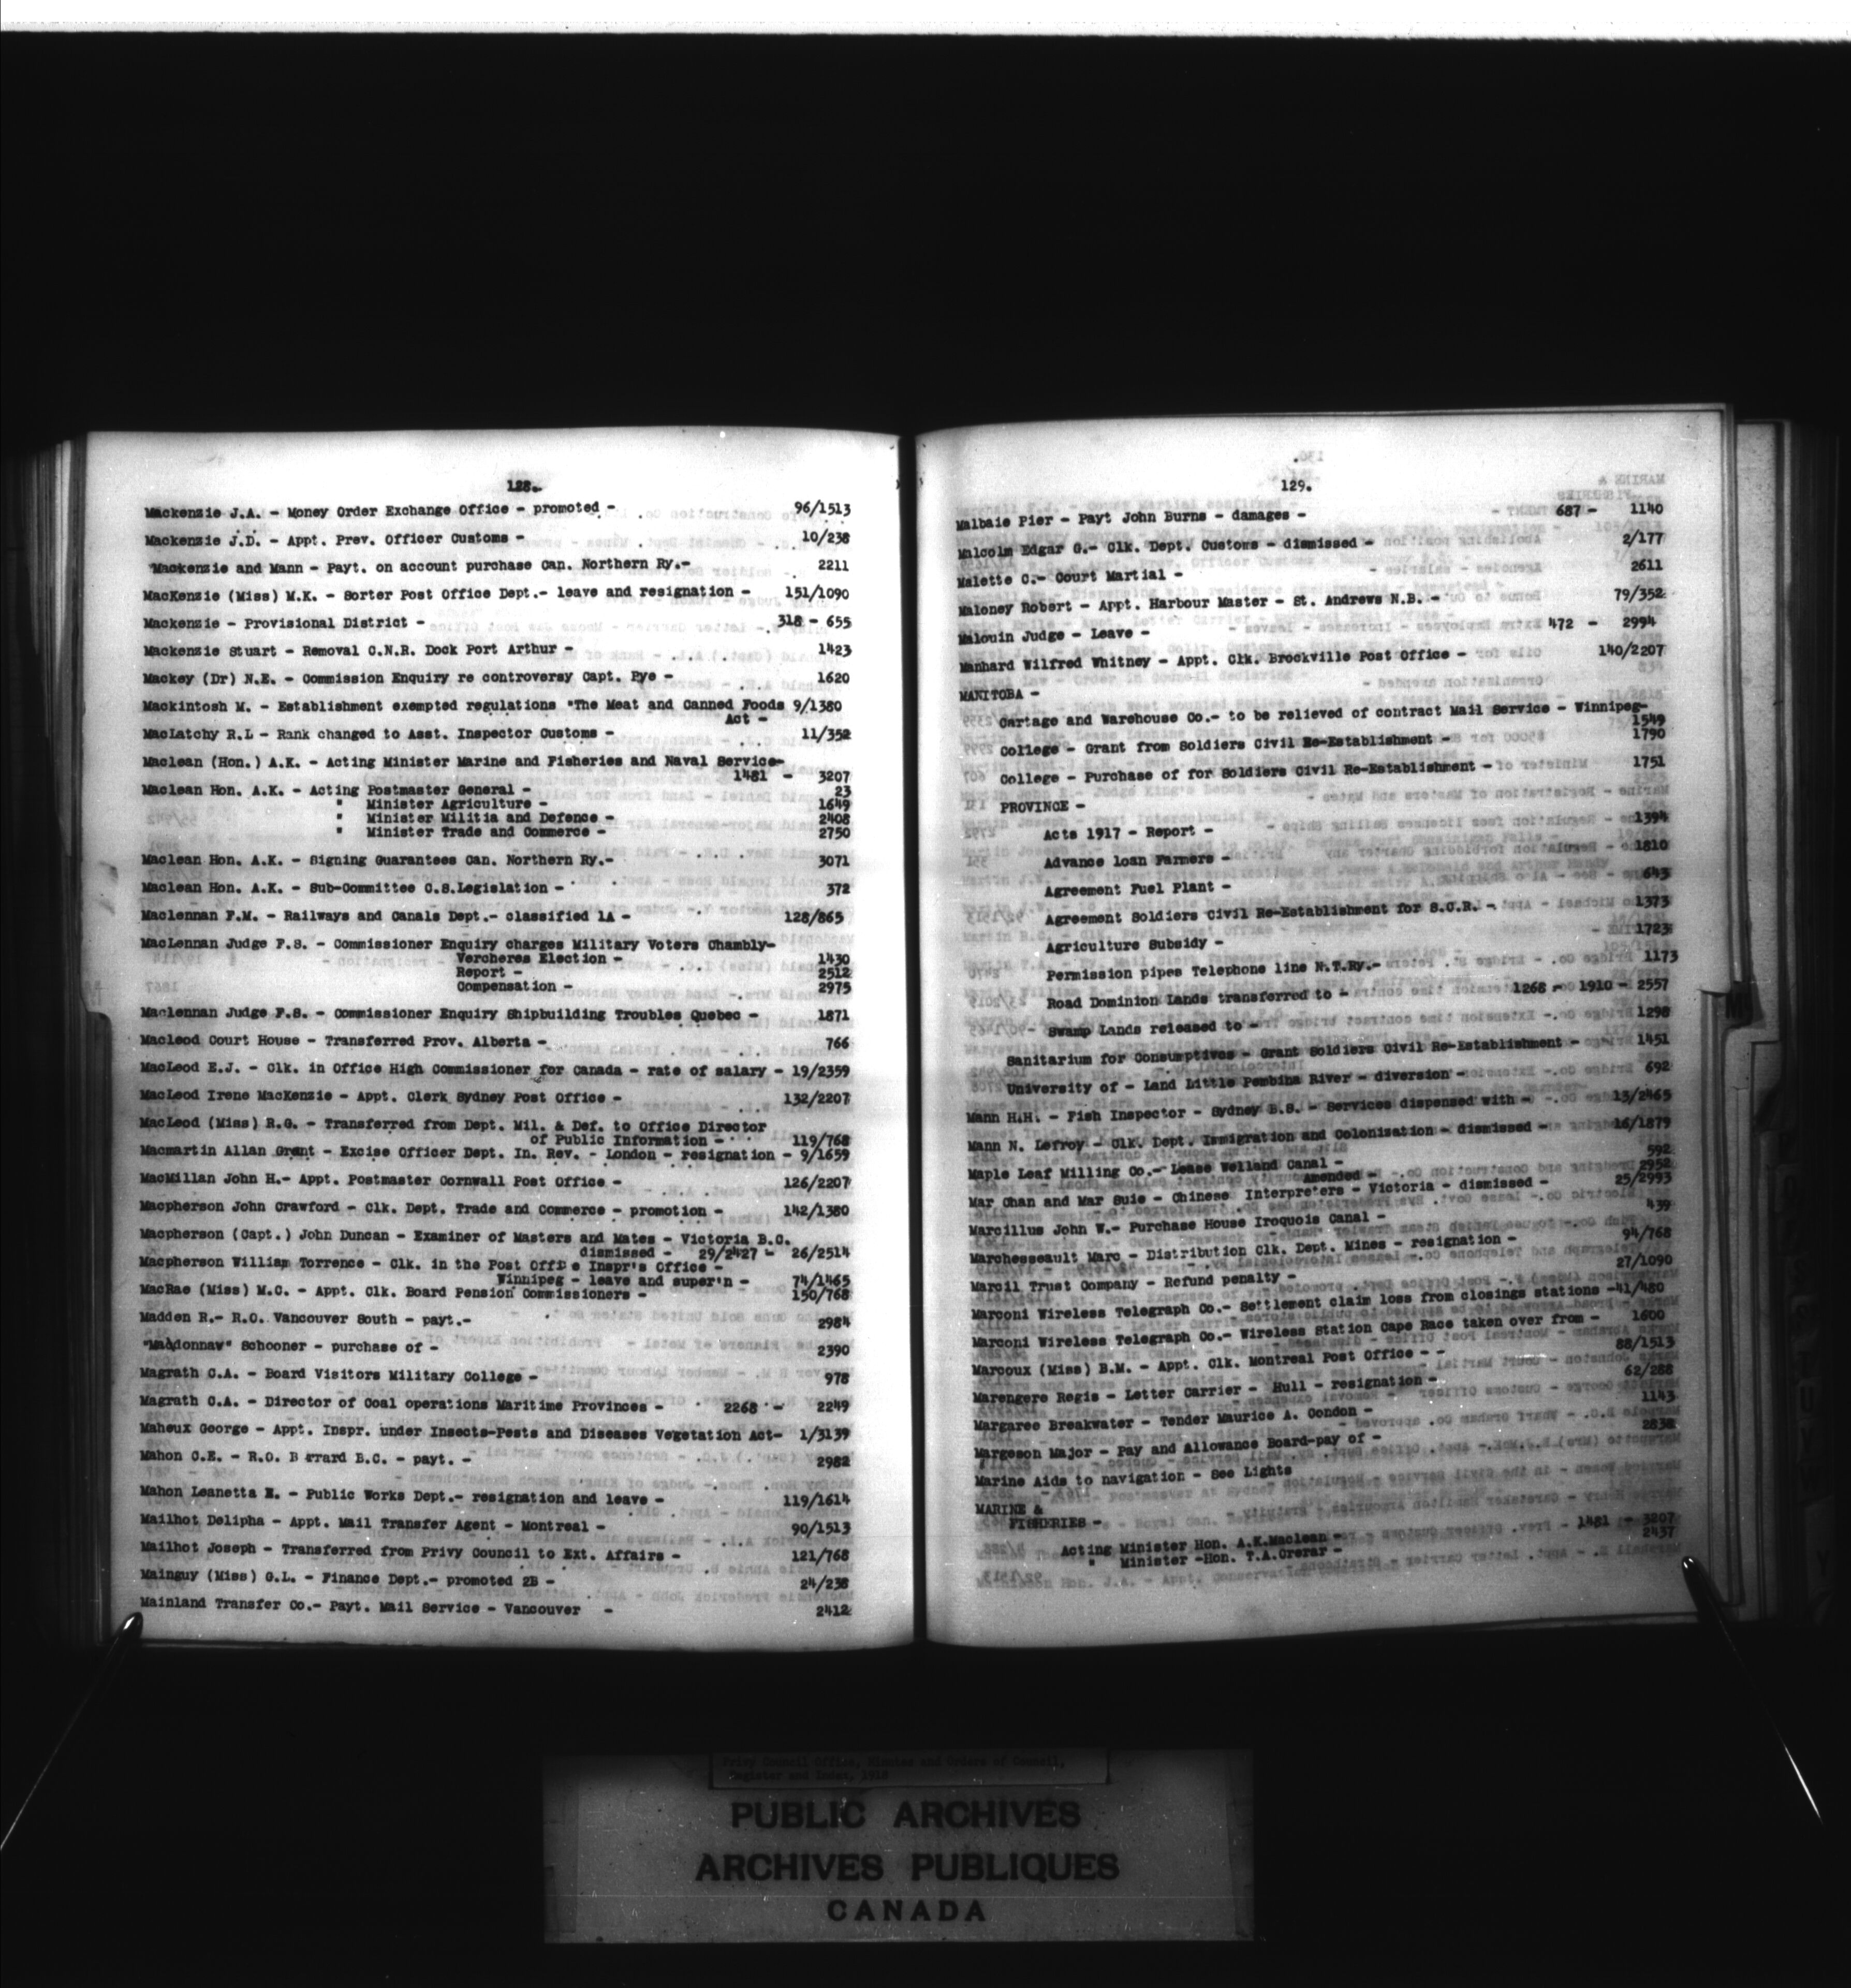 128.
Mackenzie J.A. - Money Order Exchange Office - promoted - 96/1513
Mackenzie J.D. - Appt. Prev. Officer Customs - 10/238
Mackenzie and Mann - Payt. on account purchase Can. Northern Ry.- 2211
MacKenzie (Miss) M.K. - Sorter Post Office Dept.- leave and resignation - 151/1090
Mackenzie - Provisional District - 318 - 655
Mackenzie Stuart - Removal C.N.R. Dock Port Arthur - 1423
Mackey (Dr) N.E. - Commission Enquiry re controversy Capt. Pye - 1620
Mackintosh M. - Establishment exempted regulations "The Meat and Canned Foods 9/1380
Act -
MacLatchy R.L - Rank changed to Asst. Inspector Customs - 11/352
Maclean (Hon.) A.K. - Acting Minister Marine and Fisheries and Naval Service-
1481 - 3207
Maclean Hon. A.K. - Acting Postmaster General - 23
" Minister Agriculture - 1649
" Minister Militia and Defence - 2408
" Minister Trade and Commerce - 2750
Maclean Hon. A.K. - Signing Guarantees Can. Northern Ry.- 3071
Maclean Hon. A.K. - Sub-Committee C.S.Legislation - 372
Maclennan F.M. - Railways and Canals Dept.- classified 1A - 128/865
MacLennan Judge F.S. - Commissioner Enquiry charges Military Voters Chambly-
Vercheres Election - 1430
Report - 2512
Compensation - 2975
Maclennan Judge F.S. - Commissioner Enquiry Shipbuilding Troubles Quebec - 1871
Macleod Court House - Transferred Prov. Alberta - 766
MacLeod E.J. - Clk. in Office High Commissioner for Canada - rate of salary - 19/2359
MacLeod Irene MacKenzie - Appt. Clerk Sydney Post Office - 132/2207
MacLeod (Miss) R.G. - Transferred from Dept. Mil. & Def. to Office Director
of Public Information - 119/768
Macmartin Allan Grant - Excise Officer Dept. In. Rev. - London - resignation - 9/1659
MacMillan John H.- Appt. Postmaster Cornwall Post Office - 126/2207
Macpherson John Crawford - Clk. Dept. Trade and Commerce - promotion - 142/1380
Macpherson (Capt.) John Duncan - Examiner of Masters and Mates - Victoria B.C.
dismissed - 29/2427 - 26/2514
Macpherson William Torrence - Clk. in the Post Office Inspr's Office -
Winnipeg - leave and super'n - 74/1465
MacRae (Miss) M.C. - Appt. Clk. Board Pension Commissioners - 150/768
Madden R.- R.O. Vancouver South - payt.- 2984
"Maddonnaw" Schooner - purchase of - 2390
Magrath C.A. - Board Visitors Military College - 978
Magrath C.A. - Director of Coal operations Maritime Provinces - 2268 - 2249
Maheux George - Appt. Inspr. under Insects-Pests and Diseases Vegetation Act- 1/3139
Mahon C.E. - R.O. B rrard B.C. - payt. - 2982
Mahon Leanetta E. - Public Works Dept.- resignation and leave - 119/1614
Mailhot Delipha - Appt. Mail Transfer Agent - Montreal - 90/1513
Mailhot Joseph - Transferred from Privy Council to Ext. Affairs - 121/768
Mainguy (Miss) G.L. - Finance Dept.- promoted 2B - 24/238
Mainland Transfer Co.- Payt. Mail Service - Vancouver - 2412
129.
Malbaie Pier - Payt John Burns - damages - 687 - 1140
Malcolm Edgar G.- Clk. Dept. Customs - dismissed - 2/177
Malette C.- Court Martial - 2611
Maloney Robert - Appt. Harbour Master - St. Andrews N.B. - 79/352
Malouin Judge - Leave - 472 - 2994
Manhard Wilfred Whitney - Appt. Clk. Brockville Post Office - 140/2207
MANITOBA -
Cartage and Warehouse Co.- to be relieved of contract Mail Service - Winnipeg-
1549
College - Grant from Soldiers Civil Re-Establishment - 1790
College - Purchase of for Soldiers Civil Re-Establishment - 1751
PROVINCE -
Acts 1917 - Report - 1394
Advance loan Farmers - 1810
Agreement Fuel Plant - 643
Agreement Soldiers Civil Re-Establishment for S.C.R. - 1373
Agriculture Subsidy - 1723
Permission pipes Telephone line N.T.Ry.- 1173
Road Dominion Lands transferred to - 1268 - 1910 - 2557
Swamp Lands released to - 1298
Sanitarium for Consumptives - Grant Soldiers Civil Re-Establishment - 1451
University of - Land Little Pembina River - diversion - 692
Mann H.H. - Fish Inspector - Sydney B.S. - Services dispensed with - 13/2465
Mann N. Lefroy - Clk. Dept. Immigration and Colonization - dismissed - 16/1879
Maple Leaf Milling Co.- Lease Welland Canal - 592
Amended - 2952
Mar Chan and Mar Suie - Chinese Interpreters - Victoria - dismissed - 25/2993
Marcillus John W.- Purchase House Iroquois Canal - 439
Marchesseault Marc - Distribution Clk. Dept. Mines - resignation - 94/768
Marcil Trust Company - Refund penalty - 27/1090
Marconi Wireless Telegraph Co.- Settlement claim loss from closings stations -41/480
Marconi Wireless Telegraph Co.- Wireless Station Cape Race taken over from - 1600
Marcoux (Miss) B.M. - Appt. Clk. Montreal Post Office - - 88/1513
Marengere Regis - Letter Carrier - Hull - resignation - 62/288
Margaree Breakwater - Tender Maurice A. Condon - 1143
Margeson Major - Pay and Allowance Board-pay of - 2838
Marine Aids to navigation - See Lights
MARINE &
FISHERIES -
Acting Minister Hon. A.K.Maclean - 1481 - 3207
" Minister -Hon. T.A.Crerar - 2437
Privy Council Office, Minutes and Orders of Council,
Register and Index, 1918
PUBLIC ARCHIVES
ARCHIVES PUBLIQUES
CANADA